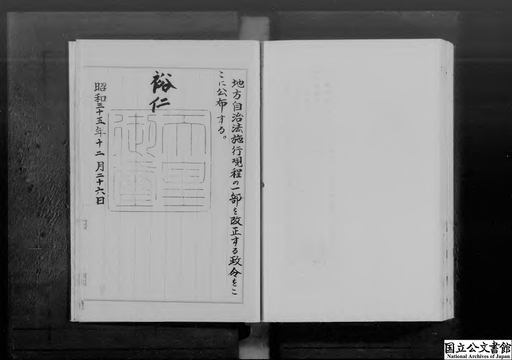 地方自治法施行規程の一部を改正する政令をこ
こに公布する。
裕仁
天皇御璽
昭和三十五年十二月二十六日
国立公文書館
National Archives of Japan